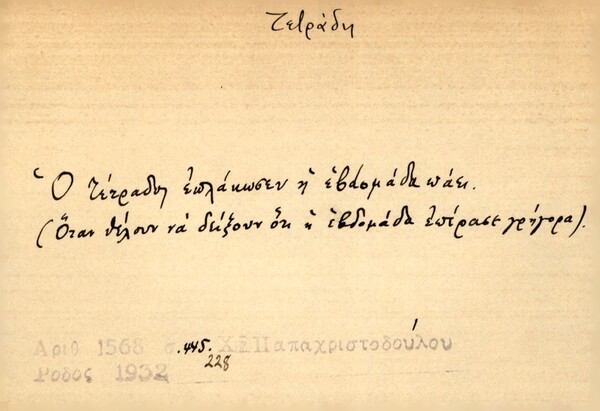 Τετράδη
Ὁ Τέτραδη ἐπλάκωσεν ἡ ἑβδομάδα πάει.
(Ὅταν θέλουν νὰ δείξουν ὅτι ἡ ἑβδομάδα ἐπέρασε γρήγορα).
Αριθ 1568 σ. 445. Χ. Παπαχριστοδούλου
228
Ρόδος 1932